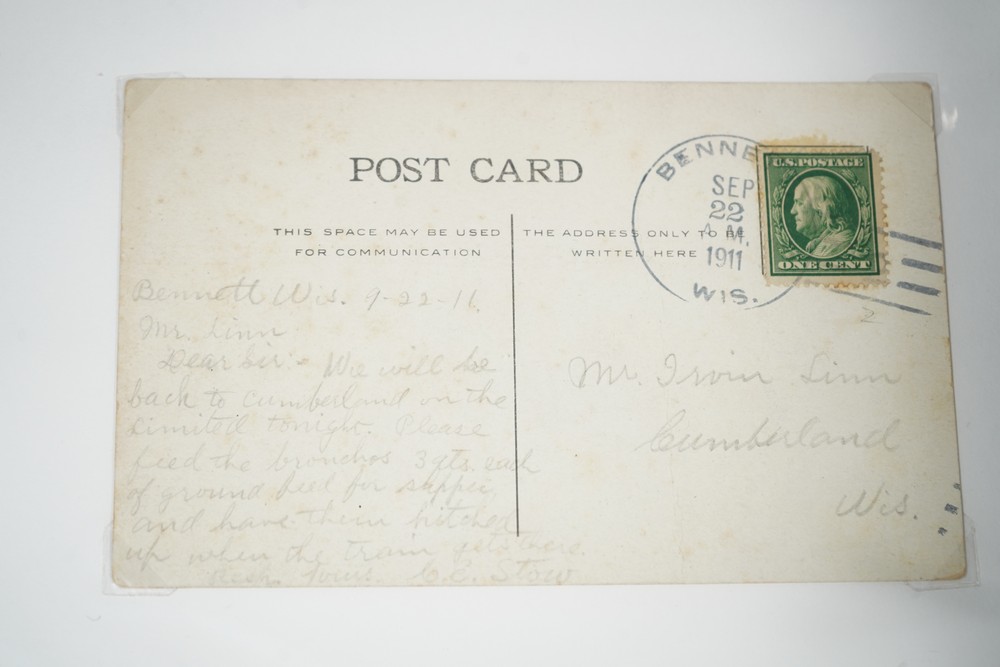 POST CARD
THIS SPACE MAY BE USED
FOR COMMUNICATION
THE ADDRESS ONLY TO BE
WRITTEN HERE
BENNE
SEP
22
A.M.
1911
WIS.
U.S. POSTAGE
ONE CENT
Bennett Wis. 9-22-11.
Mr. Linn
Dear Sir:- We will be
back to Cumberland on the
Limited tonight. Please
feed the bronchos 3 qts. each
of ground feed for supper
and have them hitched
up when the train gets there.
Resp. Yours C.E. Stow
Mr. Irvin Linn
Cumberland
Wis.